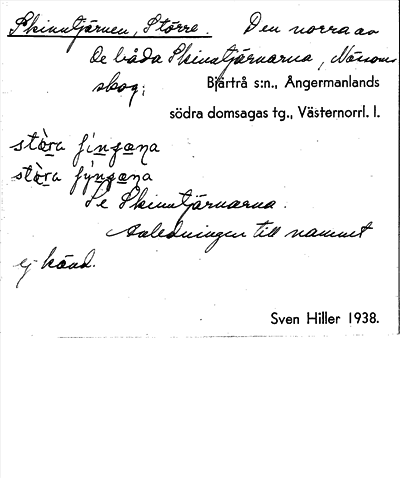 Skinntjärnen, Större. Den norra av
de båda Skinntjärnarna, Nässom
skog;
Bjärtrå s:n., Ångermanlands
södra domsagas tg., Västernorrl. l.
stòra
stòra
Se Skinntjärnarna.
Anledningen till namnet
ej känd.
Sven Hiller 1938.